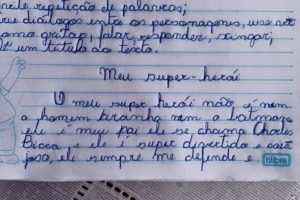 evite repetição de palavras;
tre diálogos entre os personagens, use ver
como gritar, falar, responder, xingar;
Dê um título do texto.
Meu super-herói
O meu super herói não é nem
o homem aranha nem o batman
ele é meu pai ele se chama Charles
Bicca e ele é super divertido e
ele sempre me defende e
tilibra